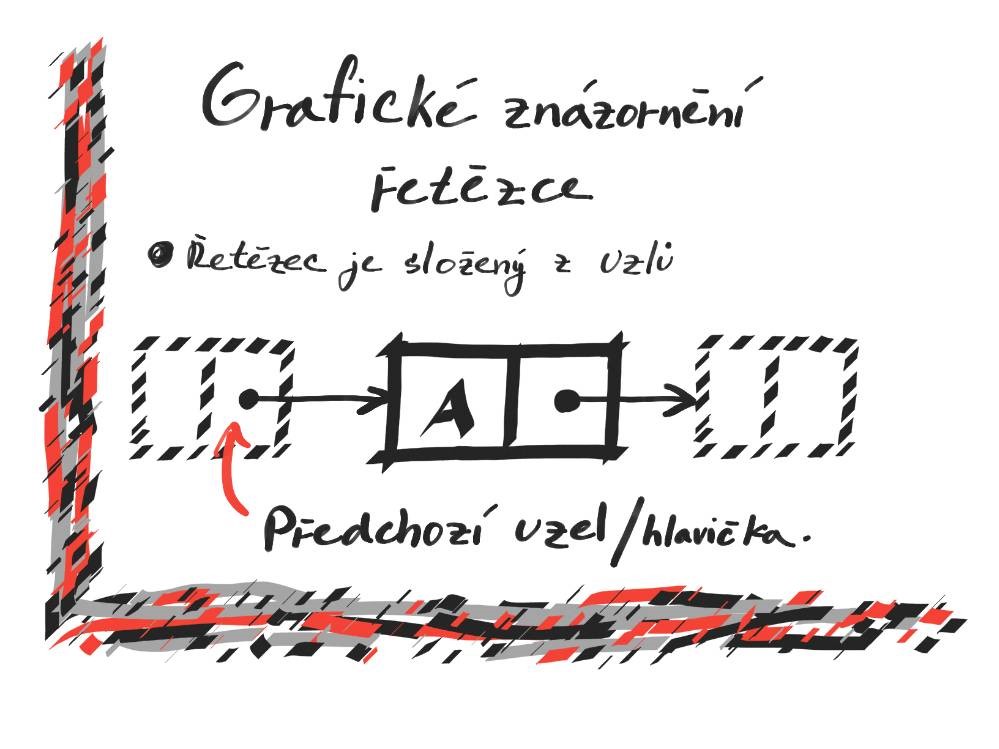 Grafické znázornění
řetězce
Řetězec je složený z uzlů
A
Předchozí uzel/hlavička.